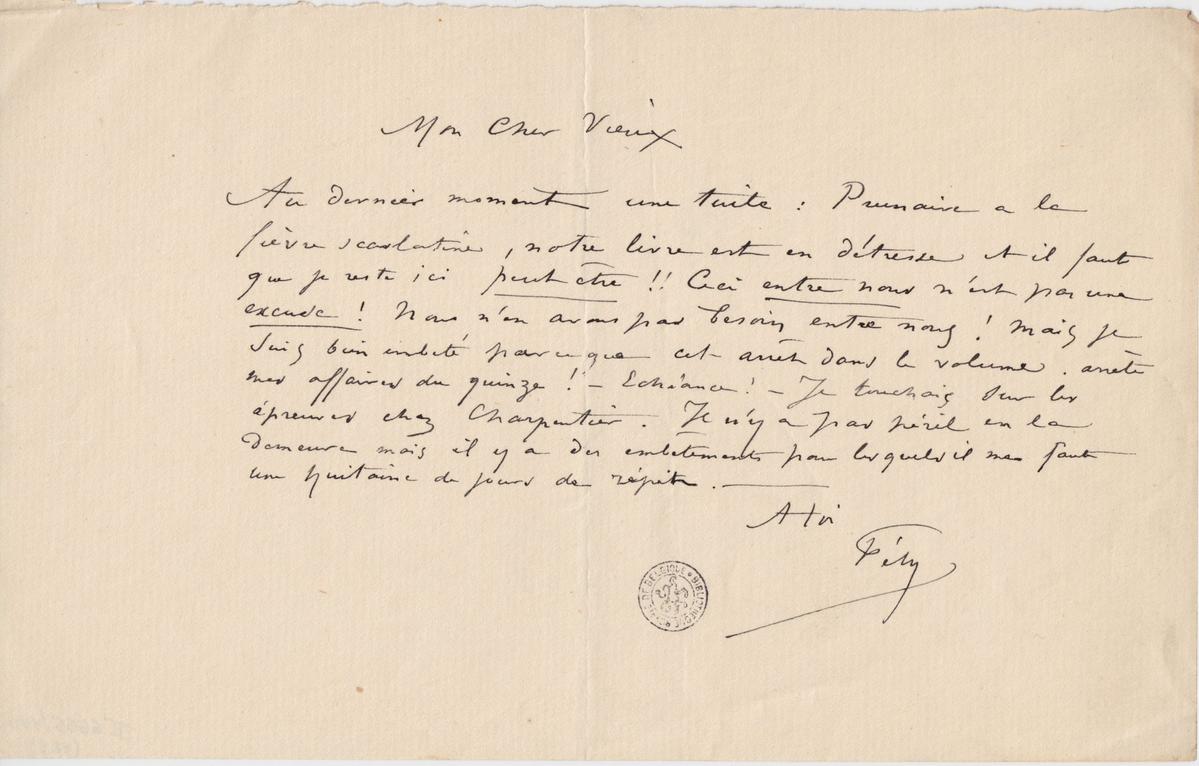 Mon Cher Vieux
Au dernier moment une tuile : Prunaire a la
fièvre scarlatine, notre livre est en détresse et il faut
que je reste ici peut être !! Ceci entre nous n'est pas une
excuse ! Nous n'en avons pas besoin entre nous ! mais je
suis bien embêté parceque cet arrêt dans le volume . arrête
mes affaires du quinze ! – Echéance ! – Je touchais sur les
épreuves chez Charpentier. Il n'y a pas péril en la
demeure mais il y a des embêtements pour lesquels il me faut
une huitaine de jours de répit .
A toi
Fély
BIBLIOTHEQUE ROYALE DE BELGIQUE